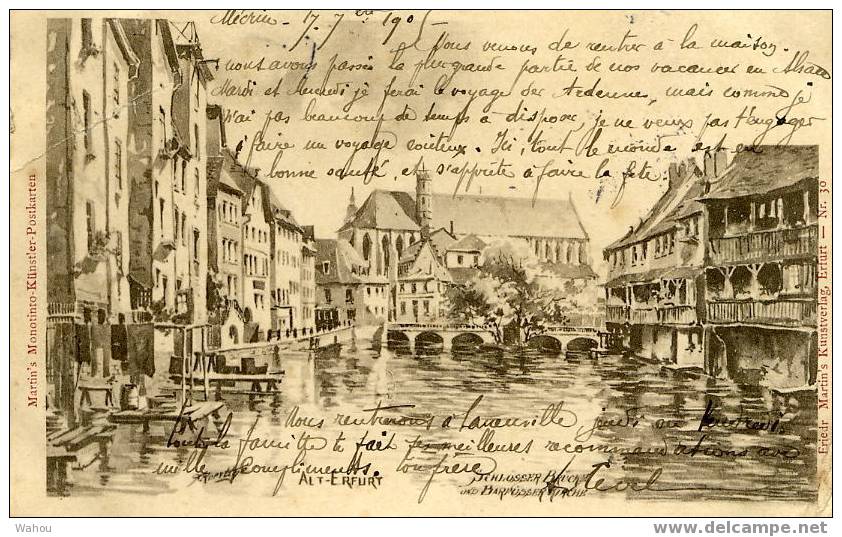 Mécrin - 17 7bre 1905
Nous venons de rentrer à la maison.
nous avons passés la plus grande partie de nos vacances en Alsace
Mardi et Mercredi je ferai le voyage des Ardennes, mais comme je
n'ai pas beaucoup de temps à disposer, je ne veux pas t'engager
à faire un voyage coûteux. Ici, tout le monde est en
bonne santé, et s'apprête à faire la fête.
Martin's Monotinto-Künstler-Postkarten
Friedr Martin's Kunstverlag, Erfurt — Nr. 30
Nous rentrerons à Laneuville, jeudi ou Vendredi.
toute la famille te fait ses meilleures recommandations avec
mille compliments. ton frère
ALT-ERFURT
SCHLÖSSER BRÜCKE
UND BARFÜSSERKIRCHE
Wahou
www.delcampe.net